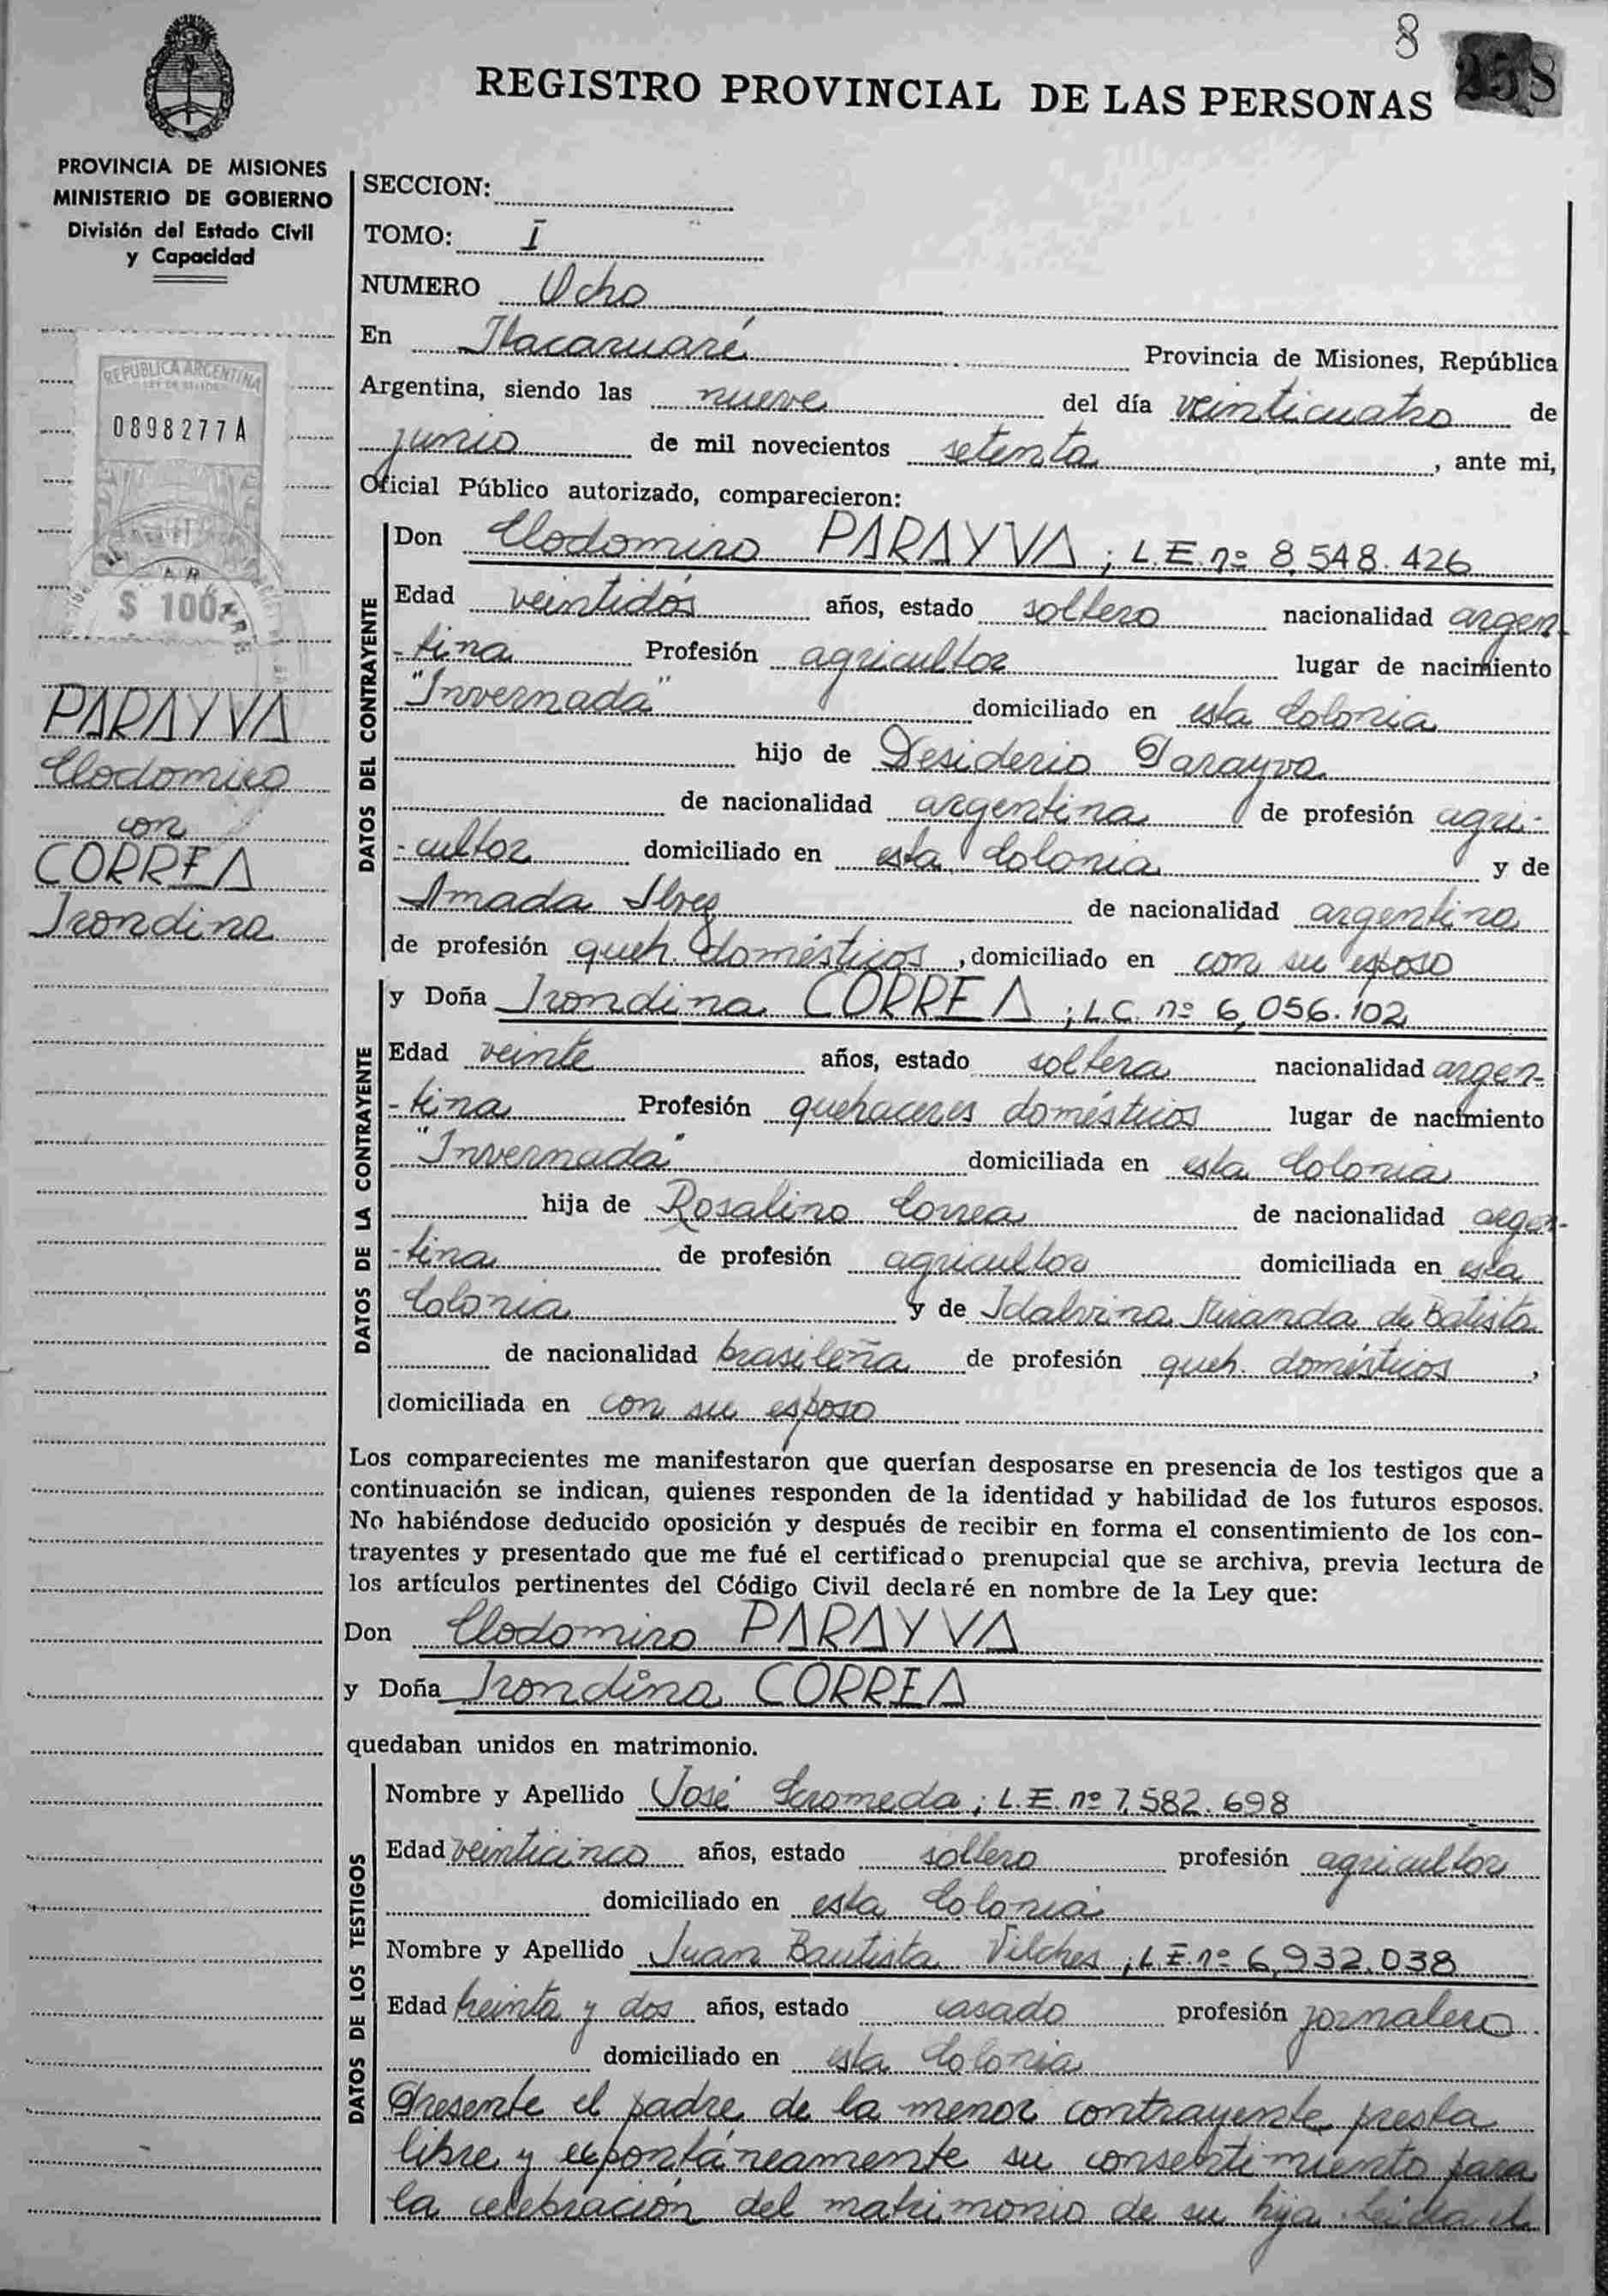 8 258
REGISTRO PROVINCIAL DE LAS PERSONAS
PROVINCIA DE MISIONES
MINISTERIO DE GOBIERNO
División del Estado Civil
y Capacidad
REPUBLICA ARGENTINA
0898277A
$ 100
PARAYVA
Clodomiro
con
CORREA
Irondina
SECCION:
TOMO: I
NUMERO Ocho
En Itacaruaré Provincia de Misiones, República
Argentina, siendo las nueve del día veinticuatro de
junio de mil novecientos setenta, ante mi,
Oficial Público autorizado, comparecieron:
DATOS DEL CONTRAYENTE
Don Clodomiro PARAYVA; L.E. nº 8,548.426
Edad veintidós años, estado soltero nacionalidad argen-
-tina Profesión agricultor lugar de nacimiento
"Invernada" domiciliado en esta Colonia
hijo de Desiderio Parayva
de nacionalidad argentina de profesión agri-
-cultor domiciliado en esta Colonia y de
Amada de nacionalidad argentina
de profesión queh. domésticos, domiciliado en con su esposo
DATOS DE LA CONTRAYENTE
y Doña Irondina CORREA; L.C. nº 6,056.102
Edad veinte años, estado soltera nacionalidad argen-
-tina Profesión quehaceres domésticos lugar de nacimiento
"Invernada" domiciliada en esta Colonia
hija de Rosalino Correa de nacionalidad argen-
-tina de profesión agricultor domiciliada en esta
Colonia y de Idalvina Miranda de Batista
de nacionalidad brasileña de profesión queh. domésticos,
domiciliada en con su esposo
Los comparecientes me manifestaron que querían desposarse en presencia de los testigos que a
continuación se indican, quienes responden de la identidad y habilidad de los futuros esposos.
No habiéndose deducido oposición y después de recibir en forma el consentimiento de los con-
trayentes y presentado que me fué el certificado prenupcial que se archiva, previa lectura de
los artículos pertinentes del Código Civil declaré en nombre de la Ley que:
Don Clodomiro PARAYVA
y Doña Irondina CORREA
quedaban unidos en matrimonio.
DATOS DE LOS TESTIGOS
Nombre y Apellido José Scromeda; L.E. nº 7,582.698
Edad veinticinco años, estado soltero profesión agricultor
domiciliado en esta Colonia
Nombre y Apellido Juan Bautista Vilches; L.E. nº 6,932.038
Edad treinta y dos años, estado casado profesión jornalero
domiciliado en esta Colonia
Presente el padre de la menor contrayente presta
libre y espontáneamente su consentimiento para
la celebración del matrimonio de su hija. Leída el